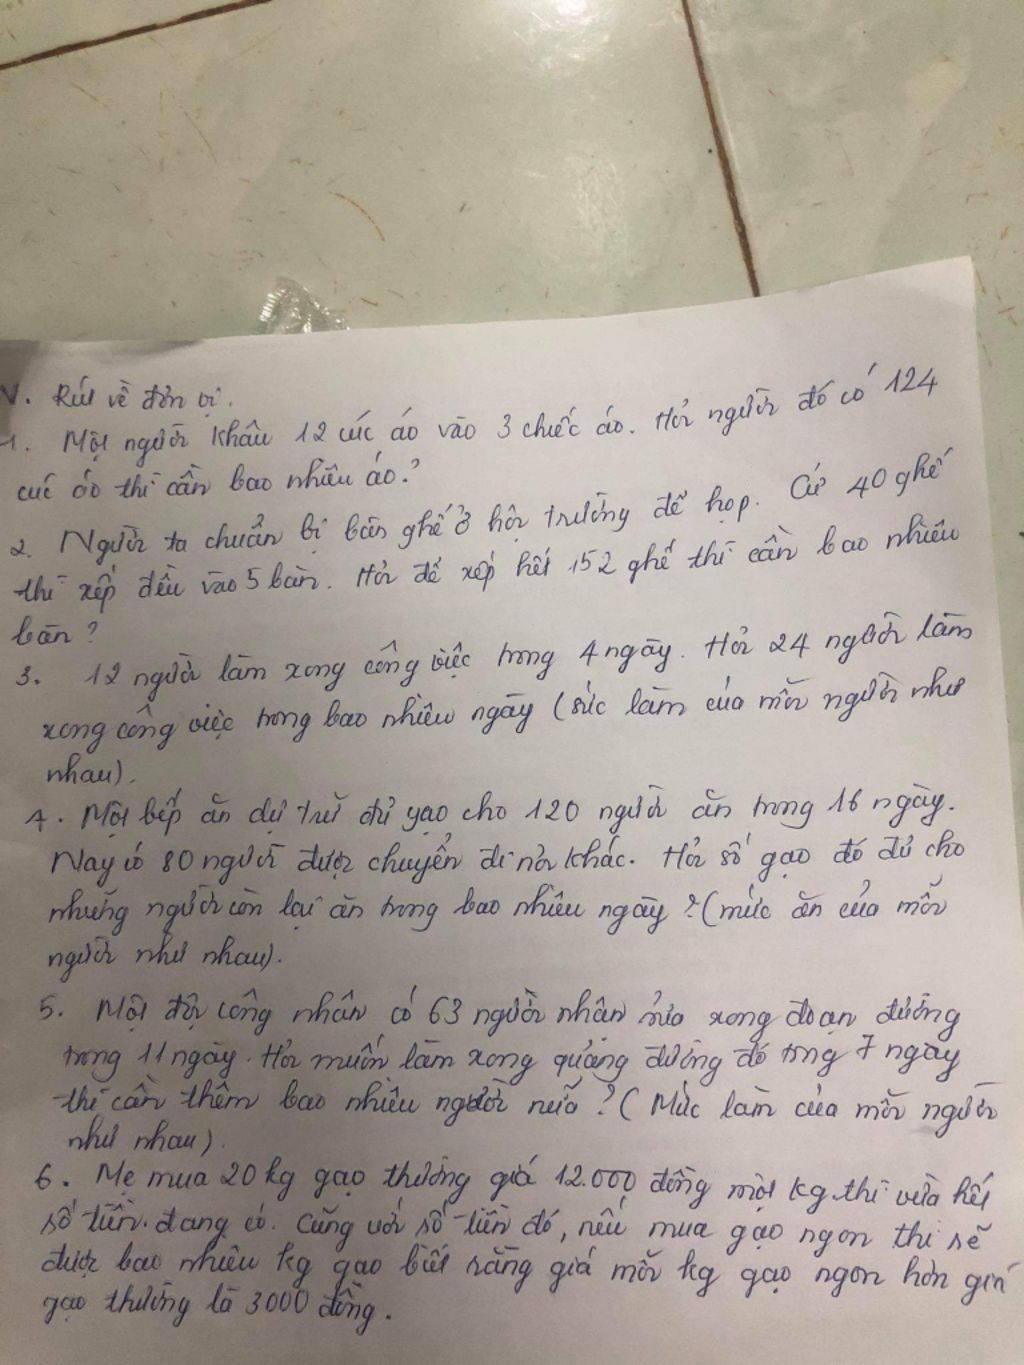 V. Rút về đơn vị.
1. Một người khâu 12 cúc áo vào 3 chiếc áo. Hỏi người đó có 124
cúc áo thì cần bao nhiêu áo?
2. Người ta chuẩn bị bàn ghế ở hội trường để họp. Cứ 40 ghế
thì xếp đều vào 5 bàn. Hỏi để xếp hết 152 ghế thì cần bao nhiêu
bàn?
3. 12 người làm xong công việc trong 4 ngày. Hỏi 24 người làm
xong công việc trong bao nhiêu ngày (sức làm của mỗi người như
nhau).
4. Một bếp ăn dự trữ đủ gạo cho 120 người ăn trong 16 ngày.
Nay có 80 người được chuyển đi nơi khác. Hỏi số gạo đó đủ cho
những người còn lại ăn trong bao nhiêu ngày? (mức ăn của mỗi
người như nhau).
5. Một đội công nhân có 63 người nhận sửa xong đoạn đường
trong 11 ngày. Hỏi muốn làm xong quãng đường đó trong 7 ngày
thì cần thêm bao nhiêu người nữa? (Mức làm của mỗi người
như nhau)
6. Mẹ mua 20 kg gạo thường giá 12.000 đồng một kg thì vừa hết
số tiền đang có. Cũng với số tiền đó, nếu mua gạo ngon thì sẽ
được bao nhiêu kg gạo biết rằng giá mỗi kg gạo ngon hơn giá
gạo thường là 3000 đồng.